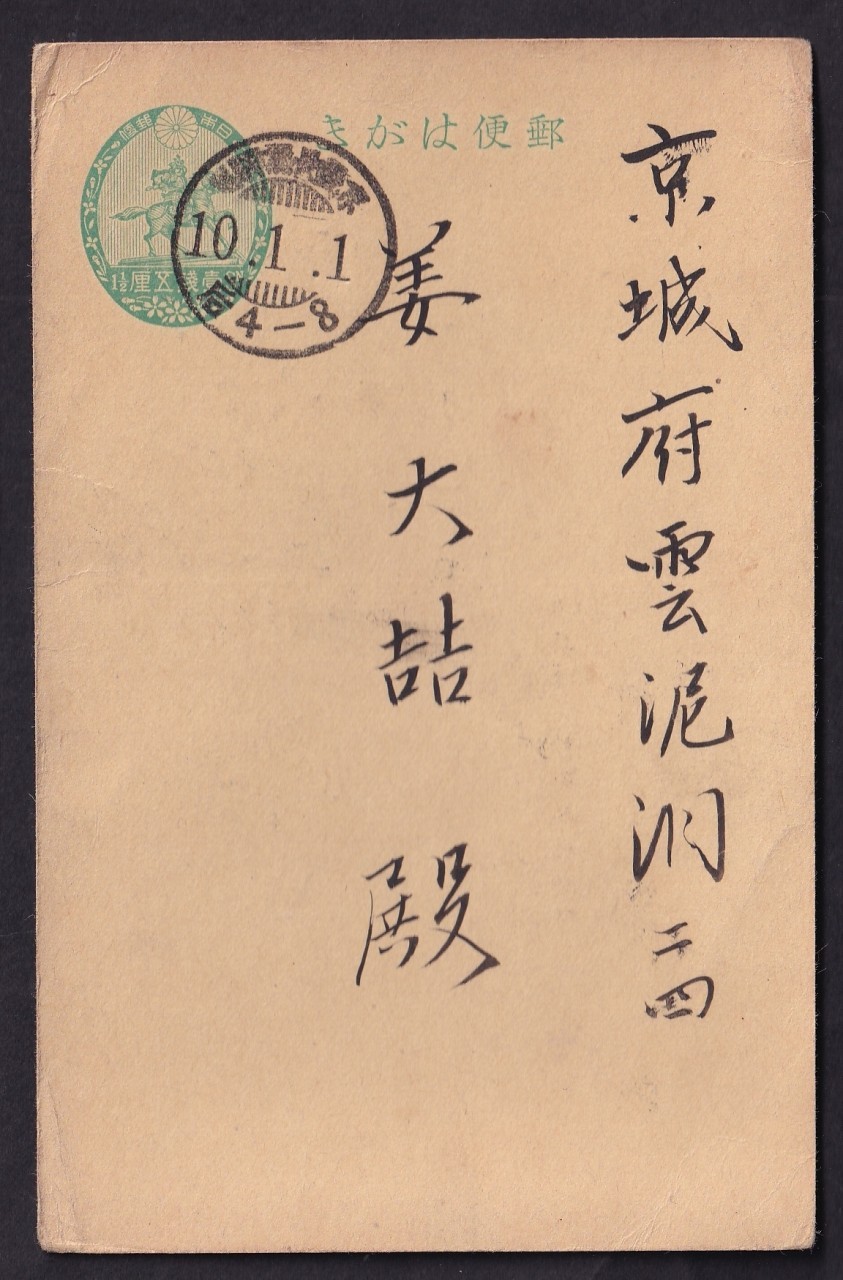 京城府雲泥洞二四
姜大喆殿
郵便はがき
日本郵便
壹錢五厘
1½
10.1.1
前4-8